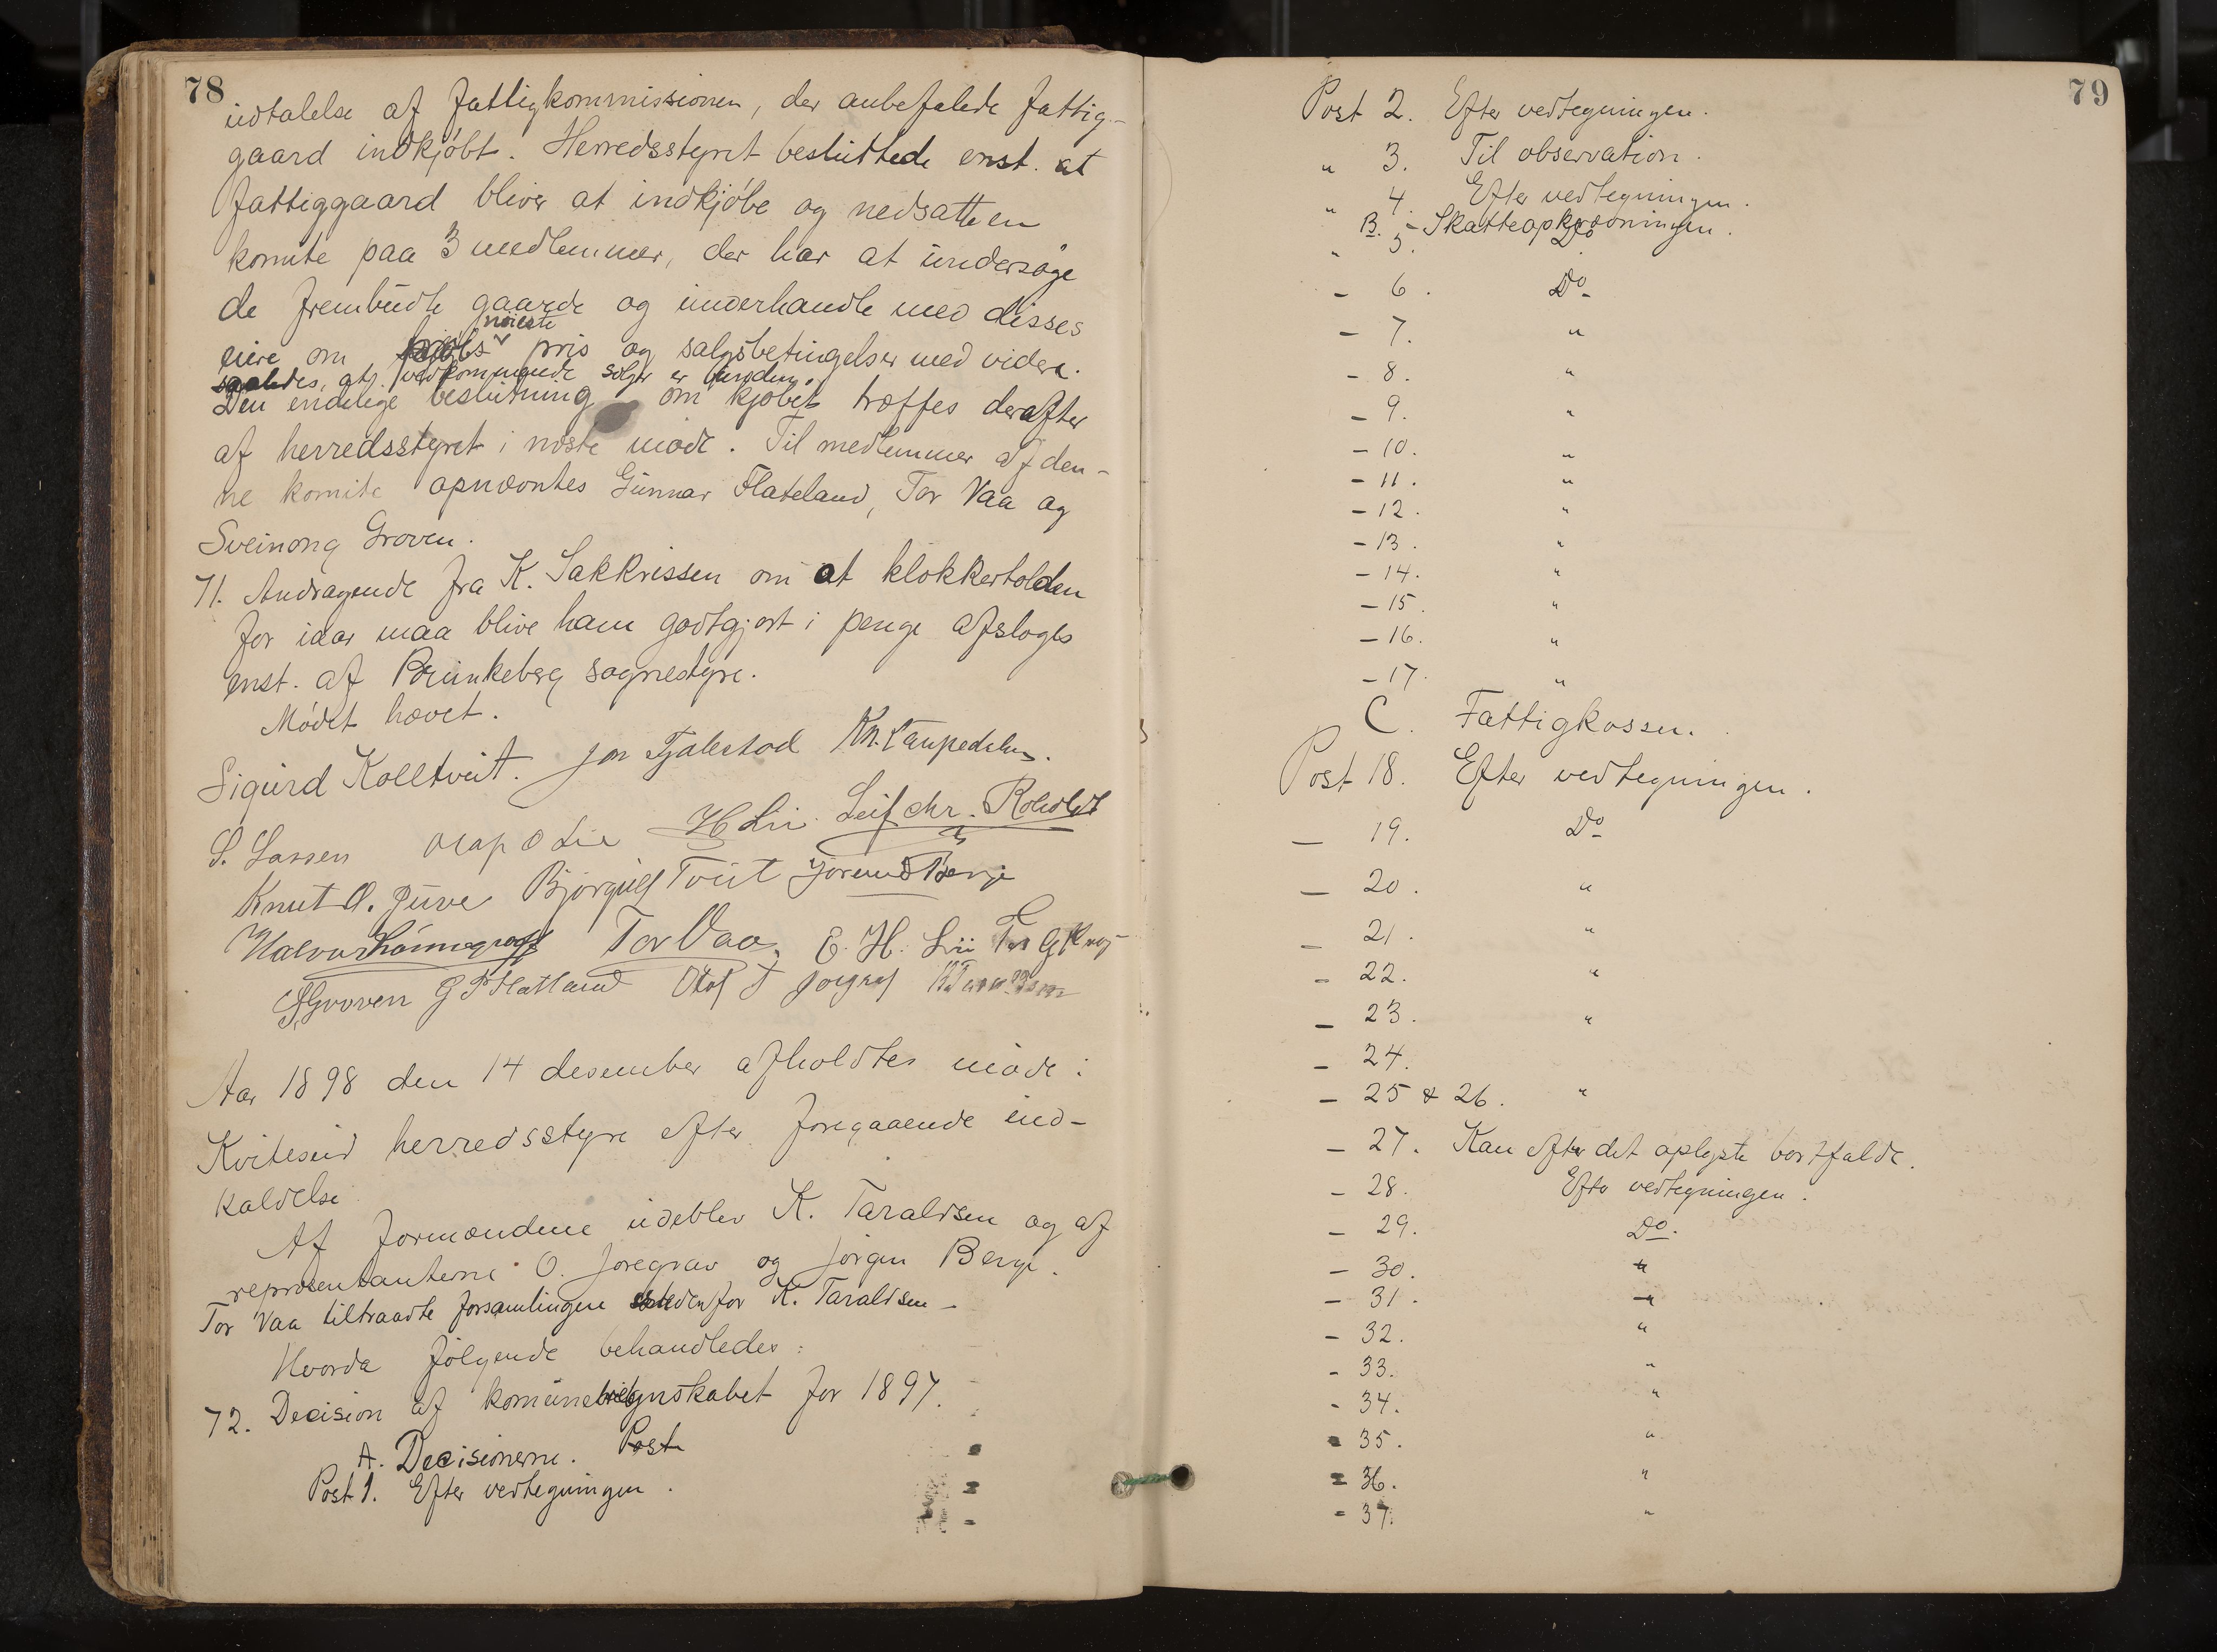 78
udtalelse af fattigkommissionen, der anbefalede fattig-
gaard indkjøbt. Herredsstyret besluttede enst. at
fattiggaard bliver at indkjøbe og nedsatte en
komite paa 3 medlemmer, der har at undersøge
de frembudte gaarde og underhandle med disses
nøieste
eiere om pris og salgsbetingelser med videre.
saaledes, at vedkommende sælger er bunden.
Den endelige beslutning om kjøbet træffes derafter
af herredsstyret i næste møde. Til medlemmer af den-
ne komite opnævntes Gunnar Flateland, Tor Vaa og
Sveinong Groven.
71. Andragende fra K. Sakkrissen om at klokkertolden
for iaar maa blive ham godtgjort i penge afsloges
enst. af Brunkeberg sognestyre.
Mødet hævet.
Sigurd Kolltveit. Jon Tjalestad Kn.
S. Lassen Olap O Lie H Lii. Leif Chr. Roholdt
Knut O. Juve Bjørgulf Tveit Jørund Berge
Halvor Tor Vaa. E. H. Lii
S Groven G T Flatland Olaf T
Aar 1898 den 14 desember afholdtes møde i
Kviteseid herredsstyre efter foregaaende ind-
kaldelse
Af formændene udeblev K. Taraldsen og af
repræsentanterne O. Joregrav og Jørgen Berge.
Tor Vaa tiltraadte forsamlingen istedenfor K. Taraldsen -
Hvorda følgende behandledes:
72. Decision af komuneregnskabet for 1897.
A. Decisionerne. Post
Post 1. Efter vedtegningen.
79
Post 2. Efter vedtegningen.
" 3. Til observation.
" 4. Efter vedtegningen.
B. - Skatteopkrævningen.
" 5. Do
- 6. Do
- 7. "
- 8. "
- 9. "
- 10. "
- 11. "
- 12. "
- 13. "
- 14. "
- 15. "
- 16. "
- 17. "
C. Fattigkassen.
Post 18. Efter vedtegningen.
- 19. Do
- 20. "
- 21. "
- 22. "
- 23. "
- 24.
- 25 & 26. "
- 27. Kan efter det oplyste bortfalde.
- 28. Efter vedtegningen.
- 29. Do.
- 30. "
- 31. "
- 32. "
- 33. "
- 34. "
- 35. "
- 36. "
- 37. "